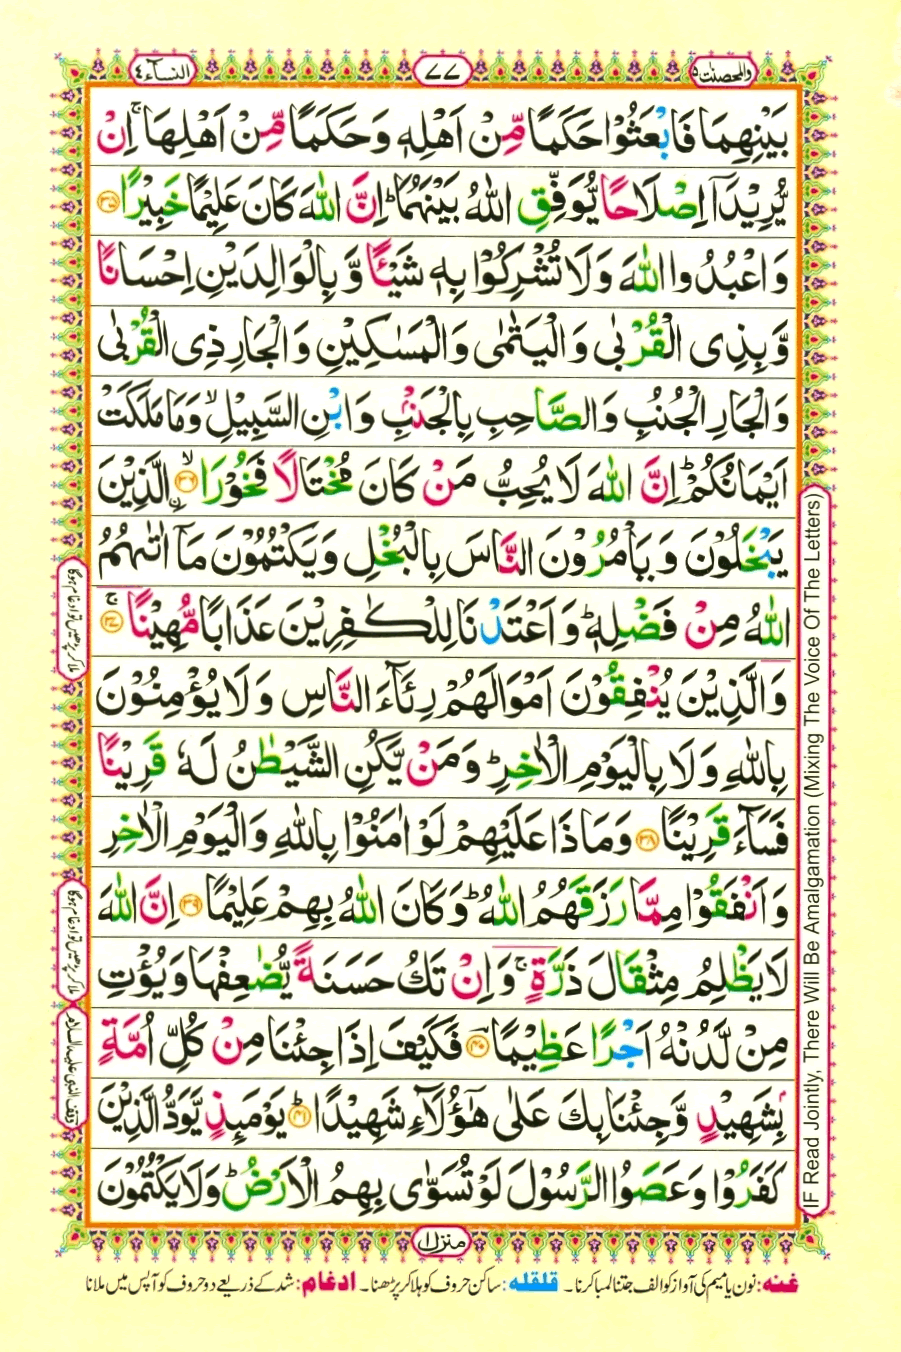 والمحصنت ۵
۷۷
النسآء ۴
بَيْنِهِمَا فَابْعَثُوْا حَكَمًا مِّنْ اَهْلِهٖ وَحَكَمًا مِّنْ اَهْلِهَا ۚ اِنْ
يُّرِيْدَاۤ اِصْلَاحًا يُّوَفِّقِ اللّٰهُ بَيْنَهُمَا ؕ اِنَّ اللّٰهَ كَانَ عَلِيْمًا خَبِيْرًا ﴿۳۵﴾
وَاعْبُدُوا اللّٰهَ وَلَا تُشْرِكُوْا بِهٖ شَيْـًٔا وَّبِالْوَالِدَيْنِ اِحْسَانًا
وَّبِذِى الْقُرْبٰى وَالْيَتٰمٰى وَالْمَسٰكِيْنِ وَالْجَارِ ذِى الْقُرْبٰى
وَالْجَارِ الْجُنُبِ وَالصَّاحِبِ بِالْجَنْۢبِ وَابْنِ السَّبِيْلِ ۙ وَمَا مَلَكَتْ
اَيْمَانُكُمْ ؕ اِنَّ اللّٰهَ لَا يُحِبُّ مَنْ كَانَ مُخْتَالًا فَخُوْرًا ﴿۳۶﴾ ۙ اۨلَّذِيْنَ
يَبْخَلُوْنَ وَيَاْمُرُوْنَ النَّاسَ بِالْبُخْلِ وَيَكْتُمُوْنَ مَاۤ اٰتٰٮهُمُ
اللّٰهُ مِنْ فَضْلِهٖ ؕ وَاَعْتَدْنَا لِلْكٰفِرِيْنَ عَذَابًا مُّهِيْنًا ﴿۳۷﴾ ۚ
وَالَّذِيْنَ يُنْفِقُوْنَ اَمْوَالَهُمْ رِئَآءَ النَّاسِ وَلَا يُؤْمِنُوْنَ
بِاللّٰهِ وَلَا بِالْيَوْمِ الْاٰخِرِ ؕ وَمَنْ يَّكُنِ الشَّيْطٰنُ لَهٗ قَرِيْنًا
فَسَآءَ قَرِيْنًا ﴿۳۸﴾ وَمَاذَا عَلَيْهِمْ لَوْ اٰمَنُوْا بِاللّٰهِ وَالْيَوْمِ الْاٰخِرِ
وَاَنْفَقُوْا مِمَّا رَزَقَهُمُ اللّٰهُ ؕ وَكَانَ اللّٰهُ بِهِمْ عَلِيْمًا ﴿۳۹﴾ اِنَّ اللّٰهَ
لَا يَظْلِمُ مِثْقَالَ ذَرَّةٍ ۚ وَاِنْ تَكُ حَسَنَةً يُّضٰعِفْهَا وَيُؤْتِ
مِنْ لَّدُنْهُ اَجْرًا عَظِيْمًا ﴿۴۰﴾ فَكَيْفَ اِذَا جِئْنَا مِنْ كُلِّ اُمَّةٍۭ
بِشَهِيْدٍ وَّجِئْنَا بِكَ عَلٰى هٰٓؤُلَآءِ شَهِيْدًا ﴿۴۱﴾ؕ يَوْمَٮِٕذٍ يَّوَدُّ الَّذِيْنَ
كَفَرُوْا وَعَصَوُا الرَّسُوْلَ لَوْ تُسَوّٰى بِهِمُ الْاَرْضُ ؕ وَلَا يَكْتُمُوْنَ
IF Read Jointly, There Will Be Amalgamation (Mixing The Voice Of The Letters)
ملا کر پڑھیں تو ادغام ہوگا
ملا کر پڑھیں تو ادغام ہوگا
وقف النبی علیہ السلام
منزل ۱
غنہ: نون یا میم کی آواز کو الف جتنا لمبا کرنا۔ قلقلہ: ساکن حروف کو ہلا کر پڑھنا۔ ادغام: شد کے ذریعے دو حروف کو آپس میں ملانا